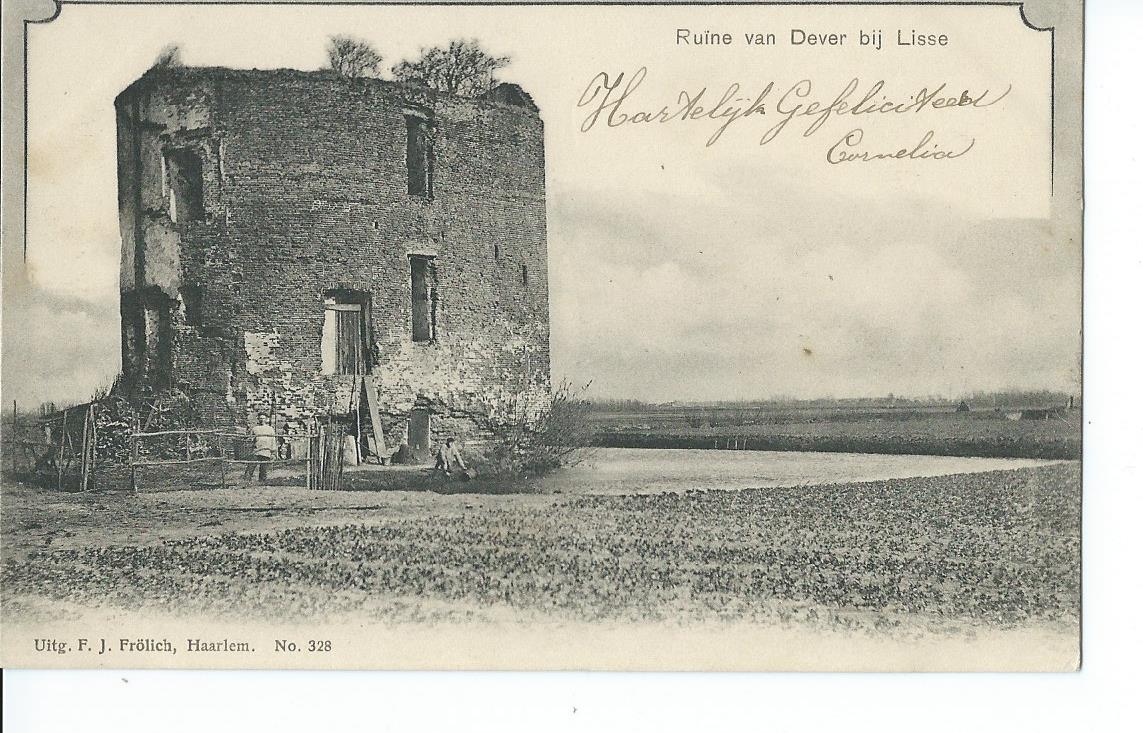 Ruïne van Dever bij Lisse
Hartelijk Gefeliciteerd
Cornelia
Uitg. F. J. Frölich, Haarlem. No. 328